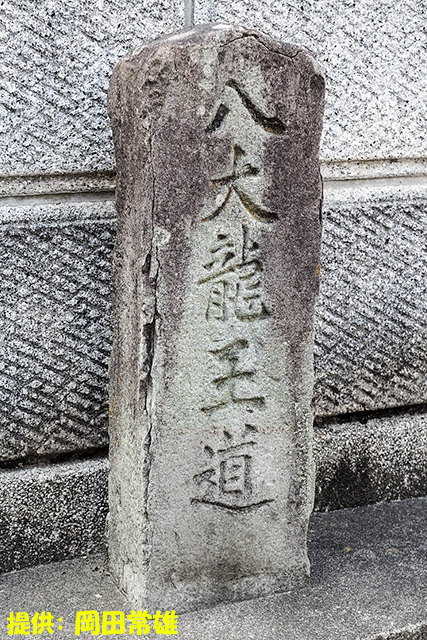 八大龍王道
提供：岡田常雄